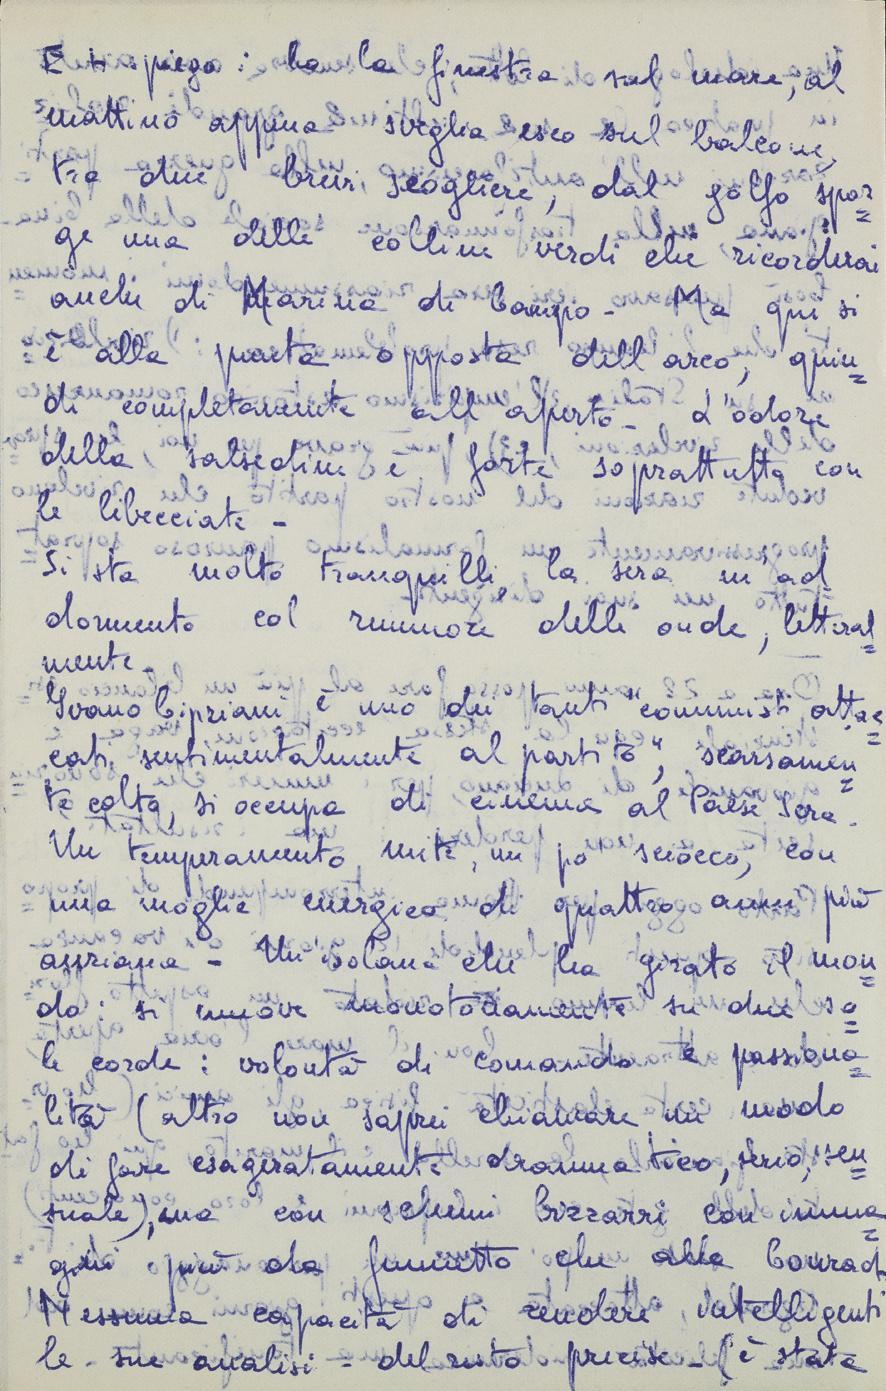 E ti spiego: ho la finestra sul mare, al
mattino appena sveglia esco sul balcone,
tra due brevi scogliere, dal golfo spor=
ge una delle colline verdi che ricorderai
anche di Marina di Campo - Ma qui si
è alla parte opposta dell'arco, quin=
di completamente all'aperto - L'odore
della salsedine è forte soprattutto con
le libecciate -
Si sta molto tranquilli, la sera m'ad=
dormento col rumore delle onde, letteral=
mente -
Ivano Cipriani è uno dei tanti "comunisti, attac=
cati sentimentalmente al partito", scarsamen=
te colto, si occupa di cinema al Paese Sera.
Un temperamento mite, un po' sciocco, con
una moglie energica di quattro anni più
anziana - Un'isolana che ha girato il mon=
do: si muove monotonamente su due so=
le corde: volontà di comando e passiona=
lità (altro non saprei chiamare un modo
di fare esageratamente drammatico, serio, sen=
suale), ma con schemi bizzarri con imma=
gini più da fumetto che alla Conrad.
Nessuna capacità di rendere intelligenti
le sue analisi - del resto precise - C'è stata